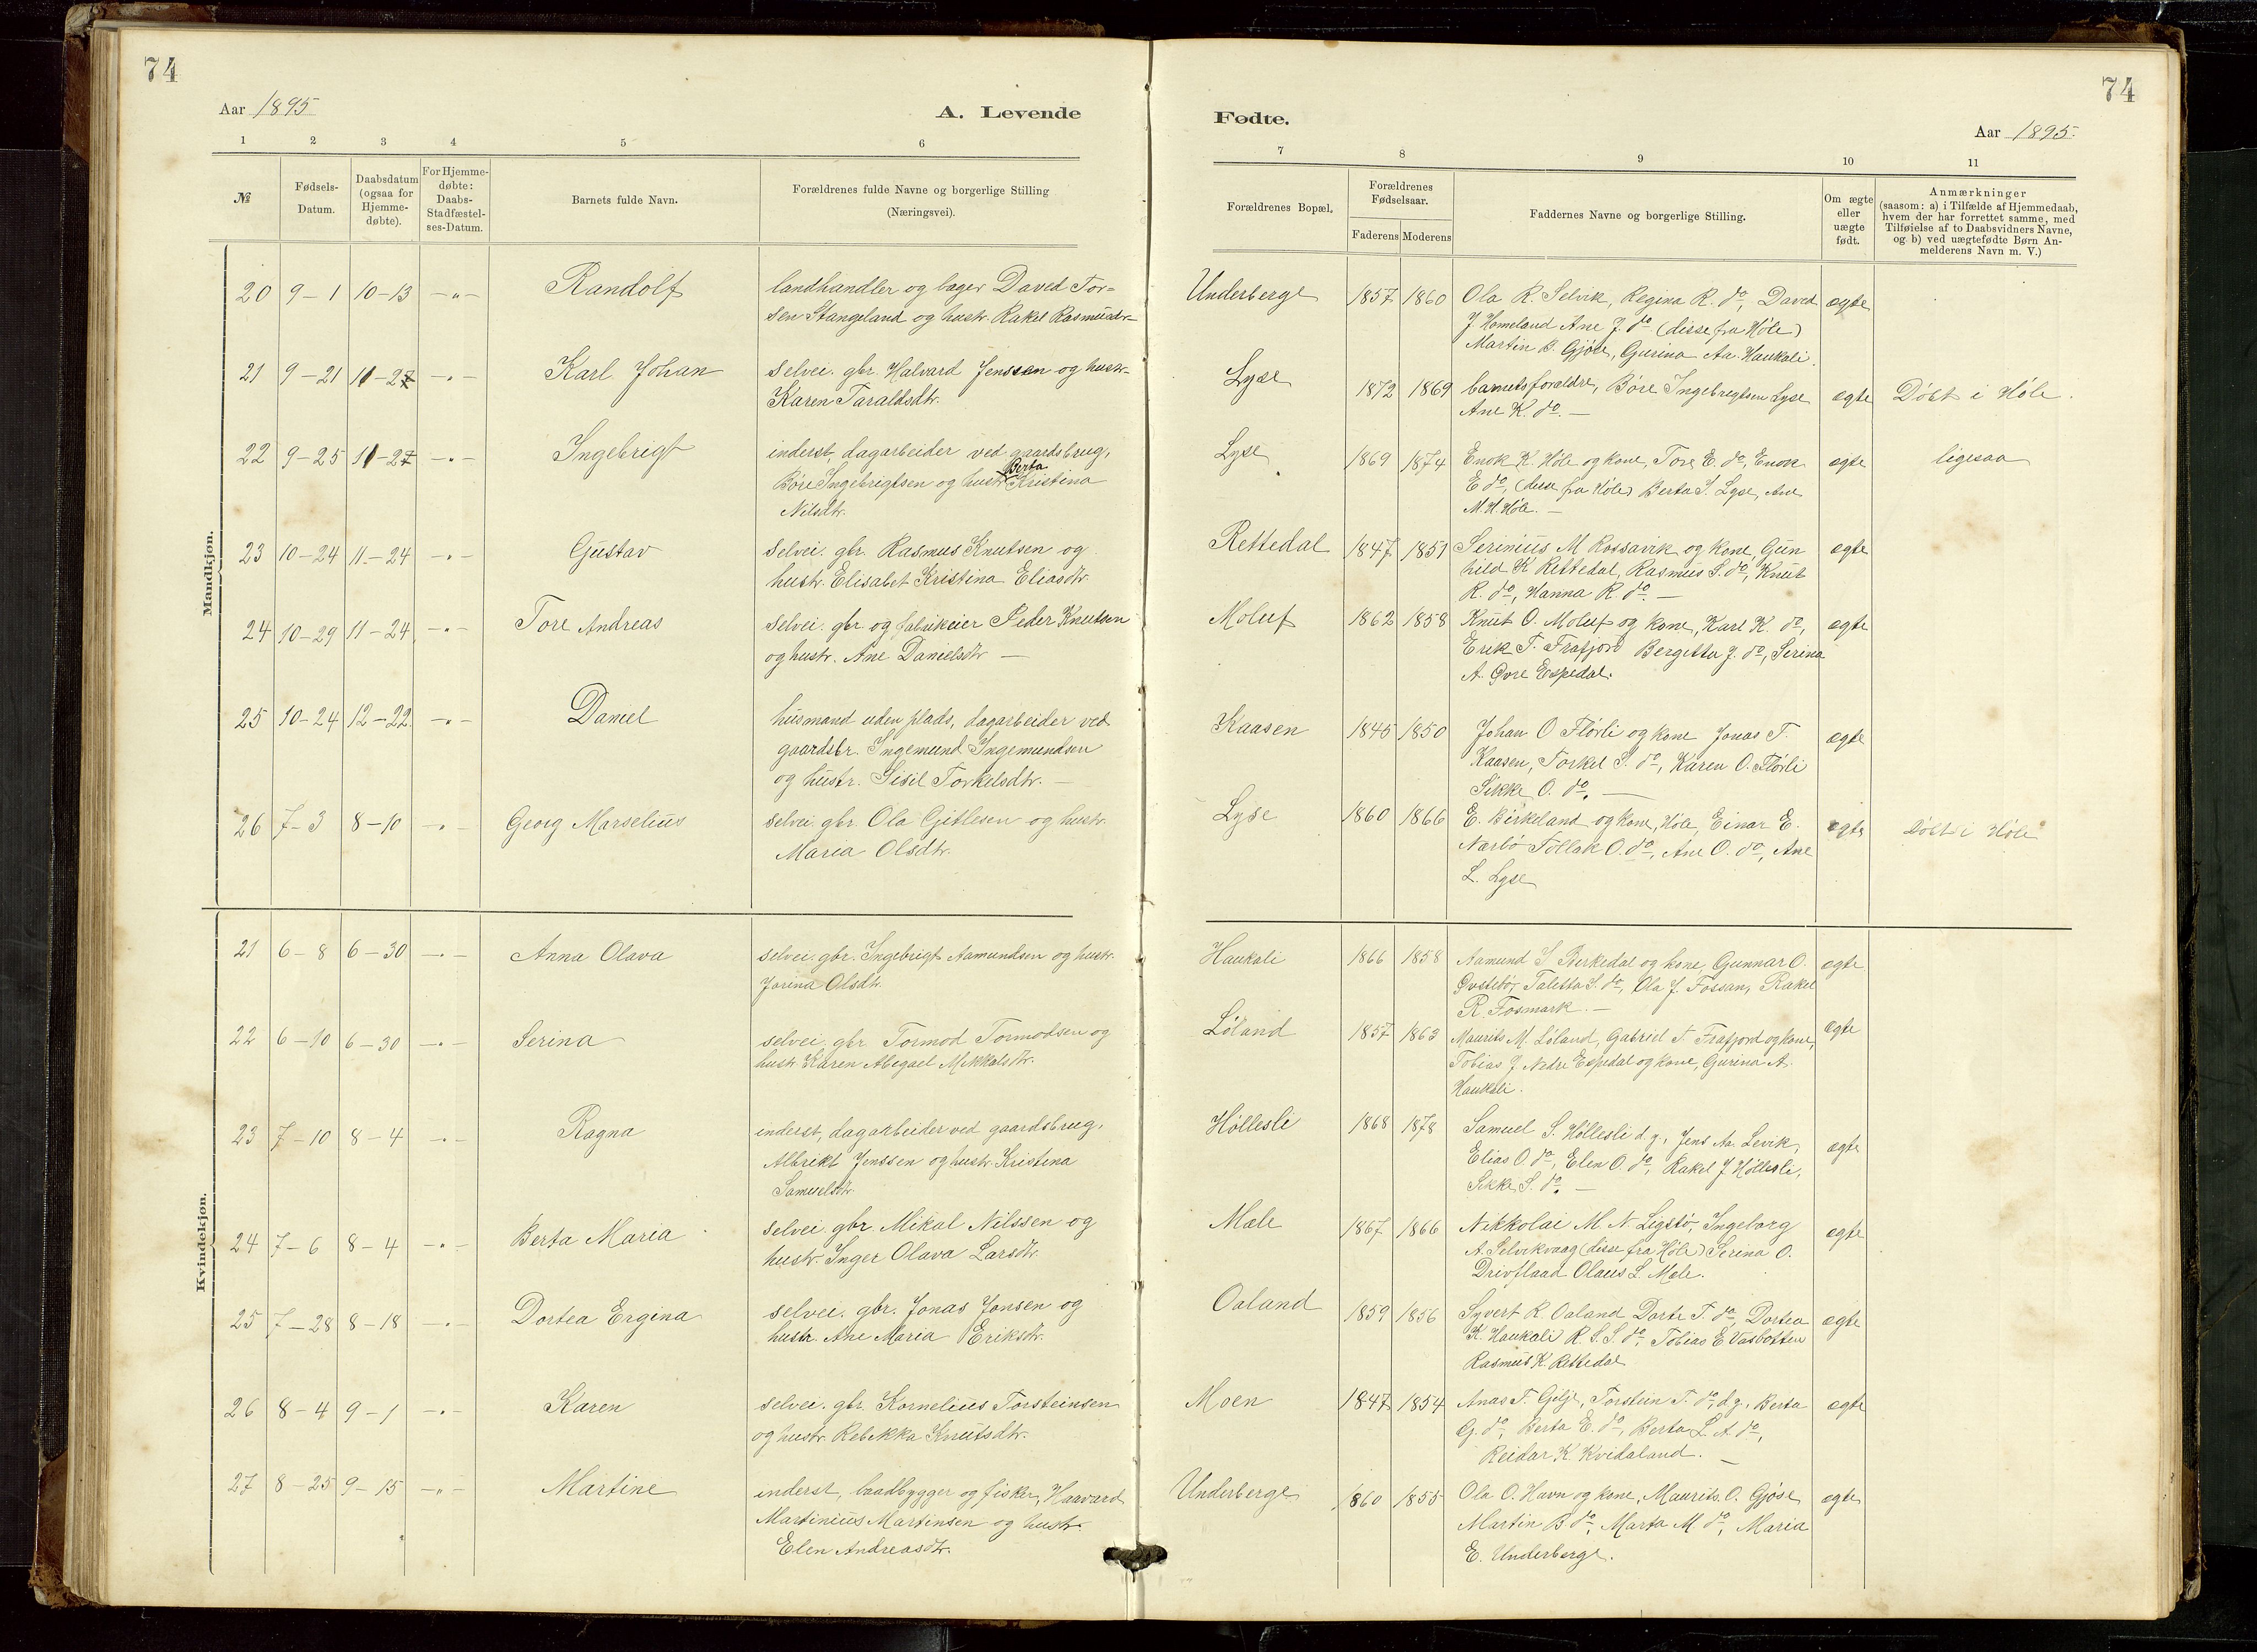 74
Aar 1895
A. Levende
1 2 3 4 5 6
№ Fødsels-Datum. Daabsdatum (ogsaa for Hjemme-døbte). For Hjemme-døbte: Daabs-Stadfæstel-ses-Datum. Barnets fulde Navn. Forældrenes fulde Navne og borgerlige Stilling (Næringsvei).
Mandkjøn.
20 9-1 10-13 -"- Randolf landhandler og bager Daved Tor-
sen Stangeland og hustr. Rakel Rasmusdtr
21 9-21 11-27 -"- Karl Johan selvei. gbr. Halvard Jenssen og hustr.
Karen Taraldsdtr.
22 9-25 11-27 -"- Ingebrigt inderst, dagarbeider ved gaardsbrug,
Berta
Bore Ingebrigtsen og hustr. Kristina
Nilsdtr.
23 10-24 11-24 -"- Gustav selvei. gbr. Rasmus Knutsen og
hustr. Elisabet Kristina Eliasdtr.
24 10-29 11-24 -"- Tore Andreas selvei. gbr. og fabrikeier Peder Knutsen
og hustr. Ane Danielsdtr —
25 10-24 12-22 -"- Daniel husmand uden plads, dagarbeider ved
gaardsbr. Ingemund Ingemundsen
og hustr. Sisil Torkelsdtr. —
26 7-3 8-10 -"- Georg Marselius selvei. gbr. Ola Gitlesen og hustr.
Maria Olsdtr.
Kvindekjøn.
21 6-8 6-30 -"- Anna Olava selvei. gbr. Ingebrigt Aamundsen og hustr.
Jorina Olsdtr.
22 6-10 6-30 -"- Serina selvei. gbr Tormod Tormodsen og
hustr Karen Abigael Mikkalsdtr.
23 7-10 8-4 -"- Ragna inderst, dagarbeider ved gaardsbrug,
Albrikt Jenssen og hustr. Kristina
Samuelsdtr.
24 7-6 8-4 -"- Berta Maria selvei. gbr. Mikal Nilssen og
hustr. Inger Olava Larsdtr.
25 7-28 8-18 -"- Dortea Ergina selvei. gbr. Jonas Jonsen og
hustr. Ane Maria Eriksdtr.
26 8-4 9-1 -"- Karen selvei. gbr. Kornelius Torsteinsen
og hustr. Rebekka Knutsdtr.
27 8-25 9-15 -"- Martine inderst, baadbygger og fisker, Haavard
Martinius Martinsen og hustr.
Elen Andreasdtr.
74
Fødte.
Aar 1895.
7 8 9 10 11
Forældrenes Bopæl. Forældrenes Fødselsaar. Faderens Moderens Faddernes Navne og borgerlige Stilling. Om ægte eller uægte født. Anmærkninger (saasom: a) i Tilfælde af Hjemmedaab, hvem der har forrettet samme, med Tilføielse af to Daabsvidners Navne, og b) ved uægtefødte Børn Anmelderens Navn m. V.)
Underberge 1857 1860 Ola R. Selvik, Regina R. do, Daved ægte
J. Homeland Ane J. do (disse fra Høle)
Martin B. Gjøse, Gurina Aa. Haukali.
Lyse 1872 1869 barnets forældre, Bore Ingebregtsen Lyse ægte Døbt i Høle.
Ane K. do. —
Lyse 1869 1874 Enok K. Høle og kone, Tore E. do, Enok ægte ligesaa
E do, (disse fra Høle) Berta S. Lyse, Ane
M. H. Høle. —
Rettedal 1847 1851 Serinius M Rossavik og kone, Gun ægte
hild K Rettedal, Rasmus S. do, Knut
R. do, Hanna R. do. —
Moluf 1862 1858 Knut O. Moluf og kone, Karl K. do, ægte
Erik T. Frafjord Bergitta J. do, Serina
A. Øvre Espedal.
Kaasen 1845 1850 Johan O Flørli og kone Jonas T. ægte
Kaasen, Torkel S. do, Karen O. Flørli
Sikke O. do. —
Lyse 1860 1866 E. Birkeland og kone, Høle, Einar E. ægte Døbt i Høle
Nærbø Tollak O. do, Ane O. do, Ane
L. Lyse
Haukali 1866 1858 Aamund S Birkedal og kone, Gunnar O. ægte
Østebø, Taletta S. do, Ola J. Fossan, Rakel
R. Fosmark. —
Løland 1857 1863 Maurits M. Løland, Gabriel T Frafjord og kone, ægte
Tobias J Nedre Espedal og kone, Gurina A.
Haukali.
Høllesli 1868 1878 Samuel S. Høllesli d. y., Jens Aa. Levik, ægte
Elias O. do, Elen O. do, Rakel J. Høllesli,
Sikke S. do. —
Mæle 1867 1866 Nikkolai M. N Ligstø, Ingeborg ægte
A. Selvikvaag (disse fra Høle) Serina O.
Drivflaad Olaus L. Mæle.
Oaland 1859 1856 Syvert R Oaland Dorte T. do, Dortea ægte
K. Haukali R S. S. do, Tobias E Vasbotten
Rasmus K. Rettedal
Moen 1847 1854 Anas T. Gilje, Torstein T. do, d.y., Berta ægte
G. do, Berta E. do, Berta L. A. do,
Reidar K. Kvidaland. —
Underberge 1860 1855 Ola O. Havn og kone, Maurits. O. Gjøse ægte
Martin B do, Marta M. do, Maria
E. Underberge.